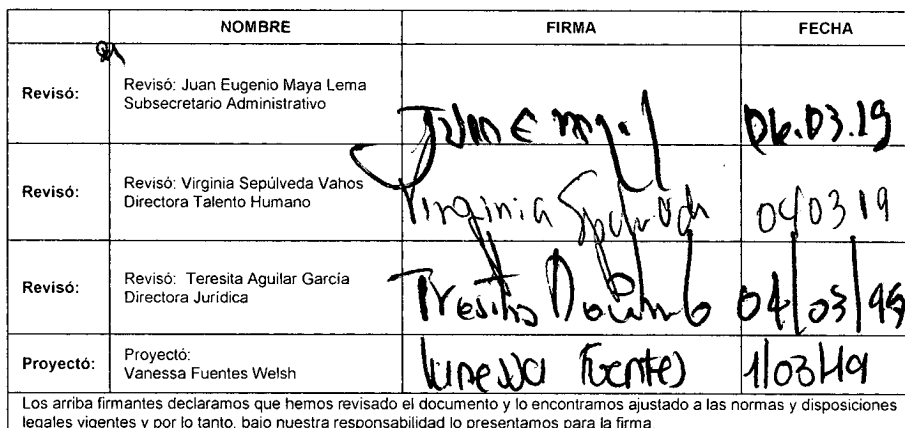 NOMBRE FIRMA FECHA
Revisó: Revisó: Juan Eugenio Maya Lema
Subsecretario Administrativo
Juan E 06.03.19
Revisó: Revisó: Virginia Sepúlveda Vahos
Directora Talento Humano
Virginia 040319
Revisó: Revisó: Teresita Aguilar García
Directora Jurídica
04/03/
Proyectó: Proyectó:
Vanessa Fuentes Welsh
Vanessa Fuentes 1/03/19
Los arriba firmantes declaramos que hemos revisado el documento y lo encontramos ajustado a las normas y disposiciones
legales vigentes y por lo tanto, bajo nuestra responsabilidad lo presentamos para la firma